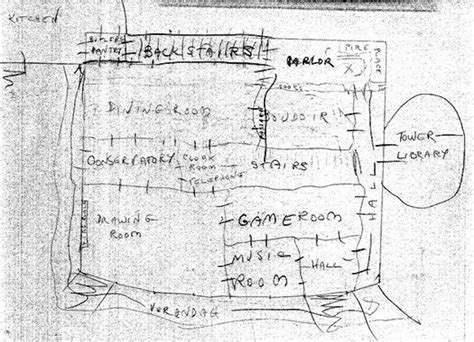 KITCHEN
BUTLERS
PANTRY
BACK STAIRS
PARLOR
FIRE
X
PLACE
DOORS
DINING ROOM
BOUDOIR
TOWER
LIBRARY
CONSERVATORY
CLOAK
ROOM
TELEPHONE
STAIRS
HALL
DRAWING
ROOM
GAME ROOM
MUSIC
ROOM
HALL
VERANDAG